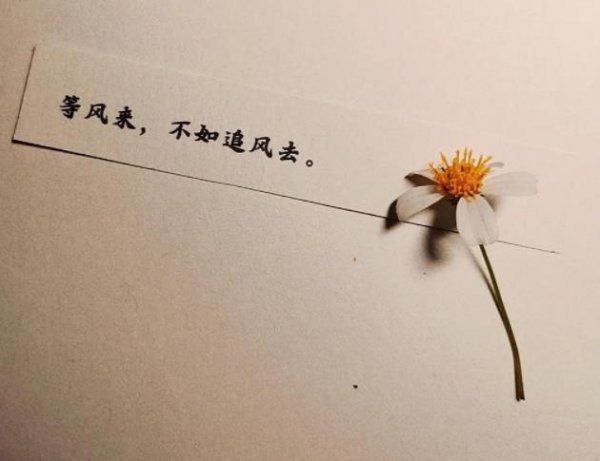 等风来，不如追风去。